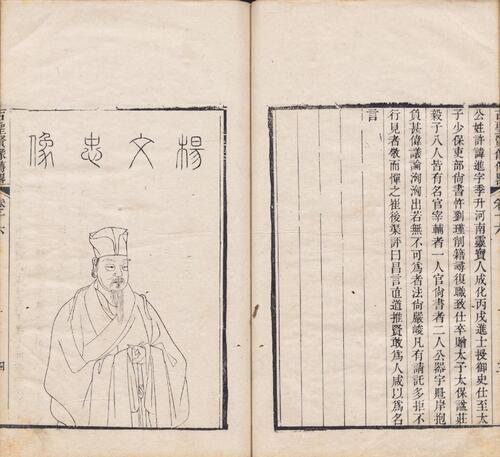 公姓許諱進字季升河南靈寶人成化丙戌進士授御史仕至太
子少保吏部尙書忤劉瑾削籍尋復職致仕卒贈太子太保諡莊
毅子八人皆有名官宰輔者一人官尙書者二人公器宇魁岸抱
負甚偉議論洶洶出若無不可爲者法尙嚴峻凡有請託多拒不
行見者敬而憚之崔後渠評曰昌言直道推賢敢爲人咸以爲名
言
楊文忠像
古聖賢像傳畧
四